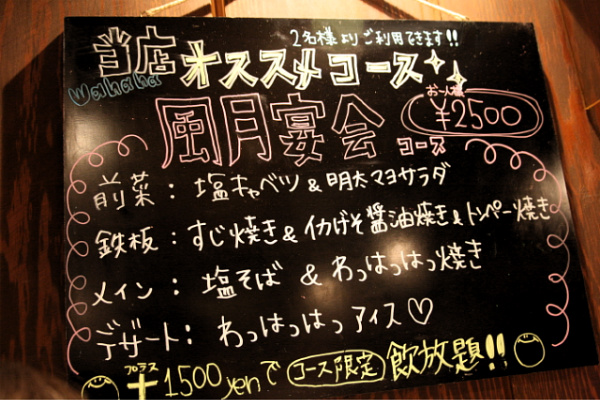 2名様よりご利用できます!!
当店オススメコース
Wahaha
風月宴会コース
お一人様
¥2500
前菜:塩キャベツ&明太マヨサラダ
鉄板:すじ焼き&イカげそ醤油焼き&トンペー焼き
メイン:塩そば & わっはっはっ焼き
デザート:わっはっはっアイス♡
プラス
+1500yenでコース限定飲放題!!